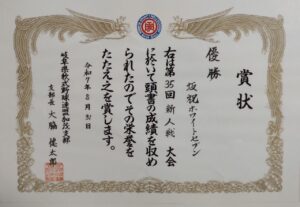 賞状
優勝
坂祝ホワイトセブン
右は第35回 新人戦 大会
に於いて頭書の成績を収め
られたのでその栄誉を
たたえ之を賞します。
令和7年8月31日
岐阜県軟式野球連盟加茂支部
支部長 大脇 健太郎